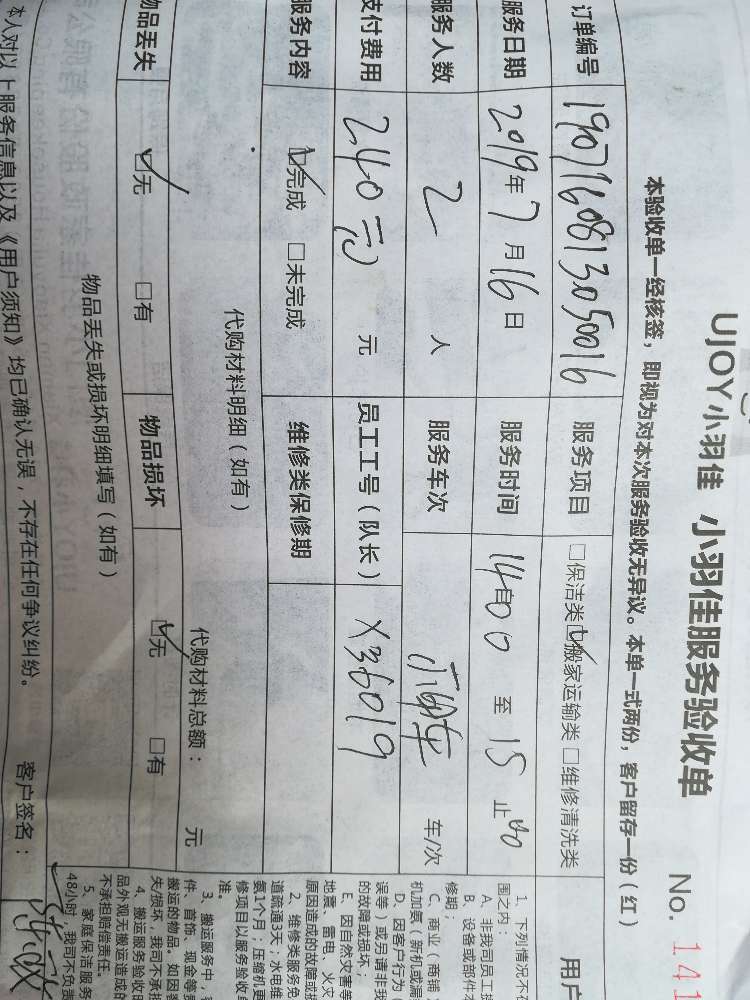 UJOY小羽佳 小羽佳服务验收单 No. 141
本验收单一经核签，即视为对本次服务验收无异议。本单一式两份，客户留存一份（红）
订单编号 1907160813050016 服务项目 □保洁类☑搬家运输类□维修清洗类
服务日期 2019年7月16日 服务时间 1400 至 15 止 00
服务人数 2 人 服务车次 车/次
支付费用 240元 元 员工工号（队长） X36019
服务内容 ☑完成 □未完成 维修类保修期
代购材料明细（如有） 代购材料总额： 元
物品丢失 ☑无 □有 物品损坏 ☑无 □有
物品丢失或损坏明细填写（如有）
本人对以上服务信息以及《用户须知》均已确认无误，不存在任何争议纠纷。 客户签名：
用户
1、下列情况不在
围之内：
A、非我司员工
B、设备或部件本
修期；
C、商业（商铺
机加氨（新机或漏
D、因客户行为
误等）或另请非我
的故障或损坏；
E、因自然灾害等
地震、雷电、火灾
原因造成的故障或
2、维修类服务免
道疏通3天；水电维
氨1个月；压缩机更
修项目以服务验收
准。
3、搬运服务中，
件、首饰、现金等
搬运的物品。如因客
失/损坏，我司不承担
4、搬运服务验收时
品外观无搬运造成的
不承担赔偿责任。
5、家庭保洁服务
48小时，我司不负责